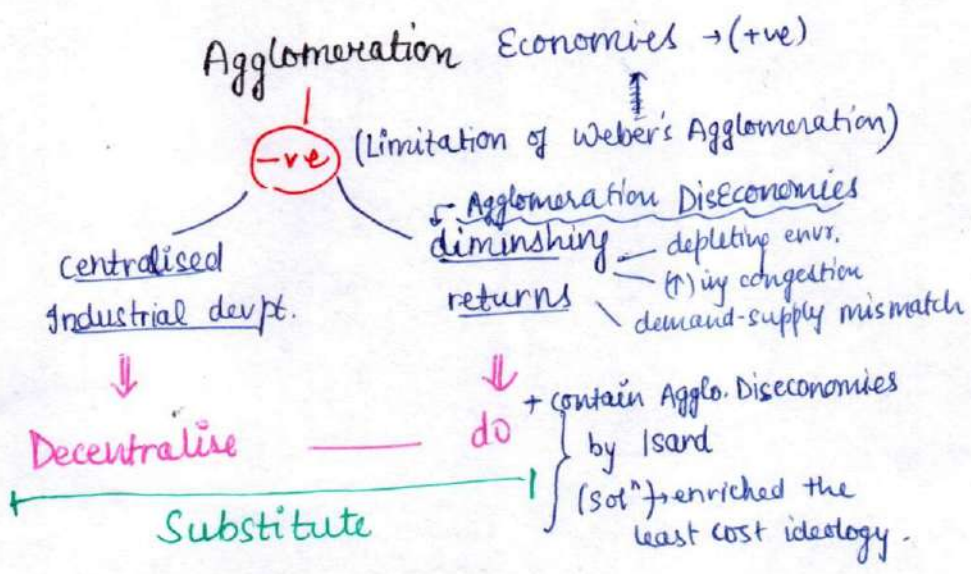 Agglomeration Economies → (+ve)
-ve (Limitation of Weber's Agglomeration)
Agglomeration DisEconomies
centralised
Industrial devpt.
diminshing
returns
depleting envr.
(↑)ing congestion
demand-supply mismatch
Decentralise —— do
+ contain Agglo. Diseconomies
by Isard
(solⁿ)→enriched the
least cost ideology.
Substitute